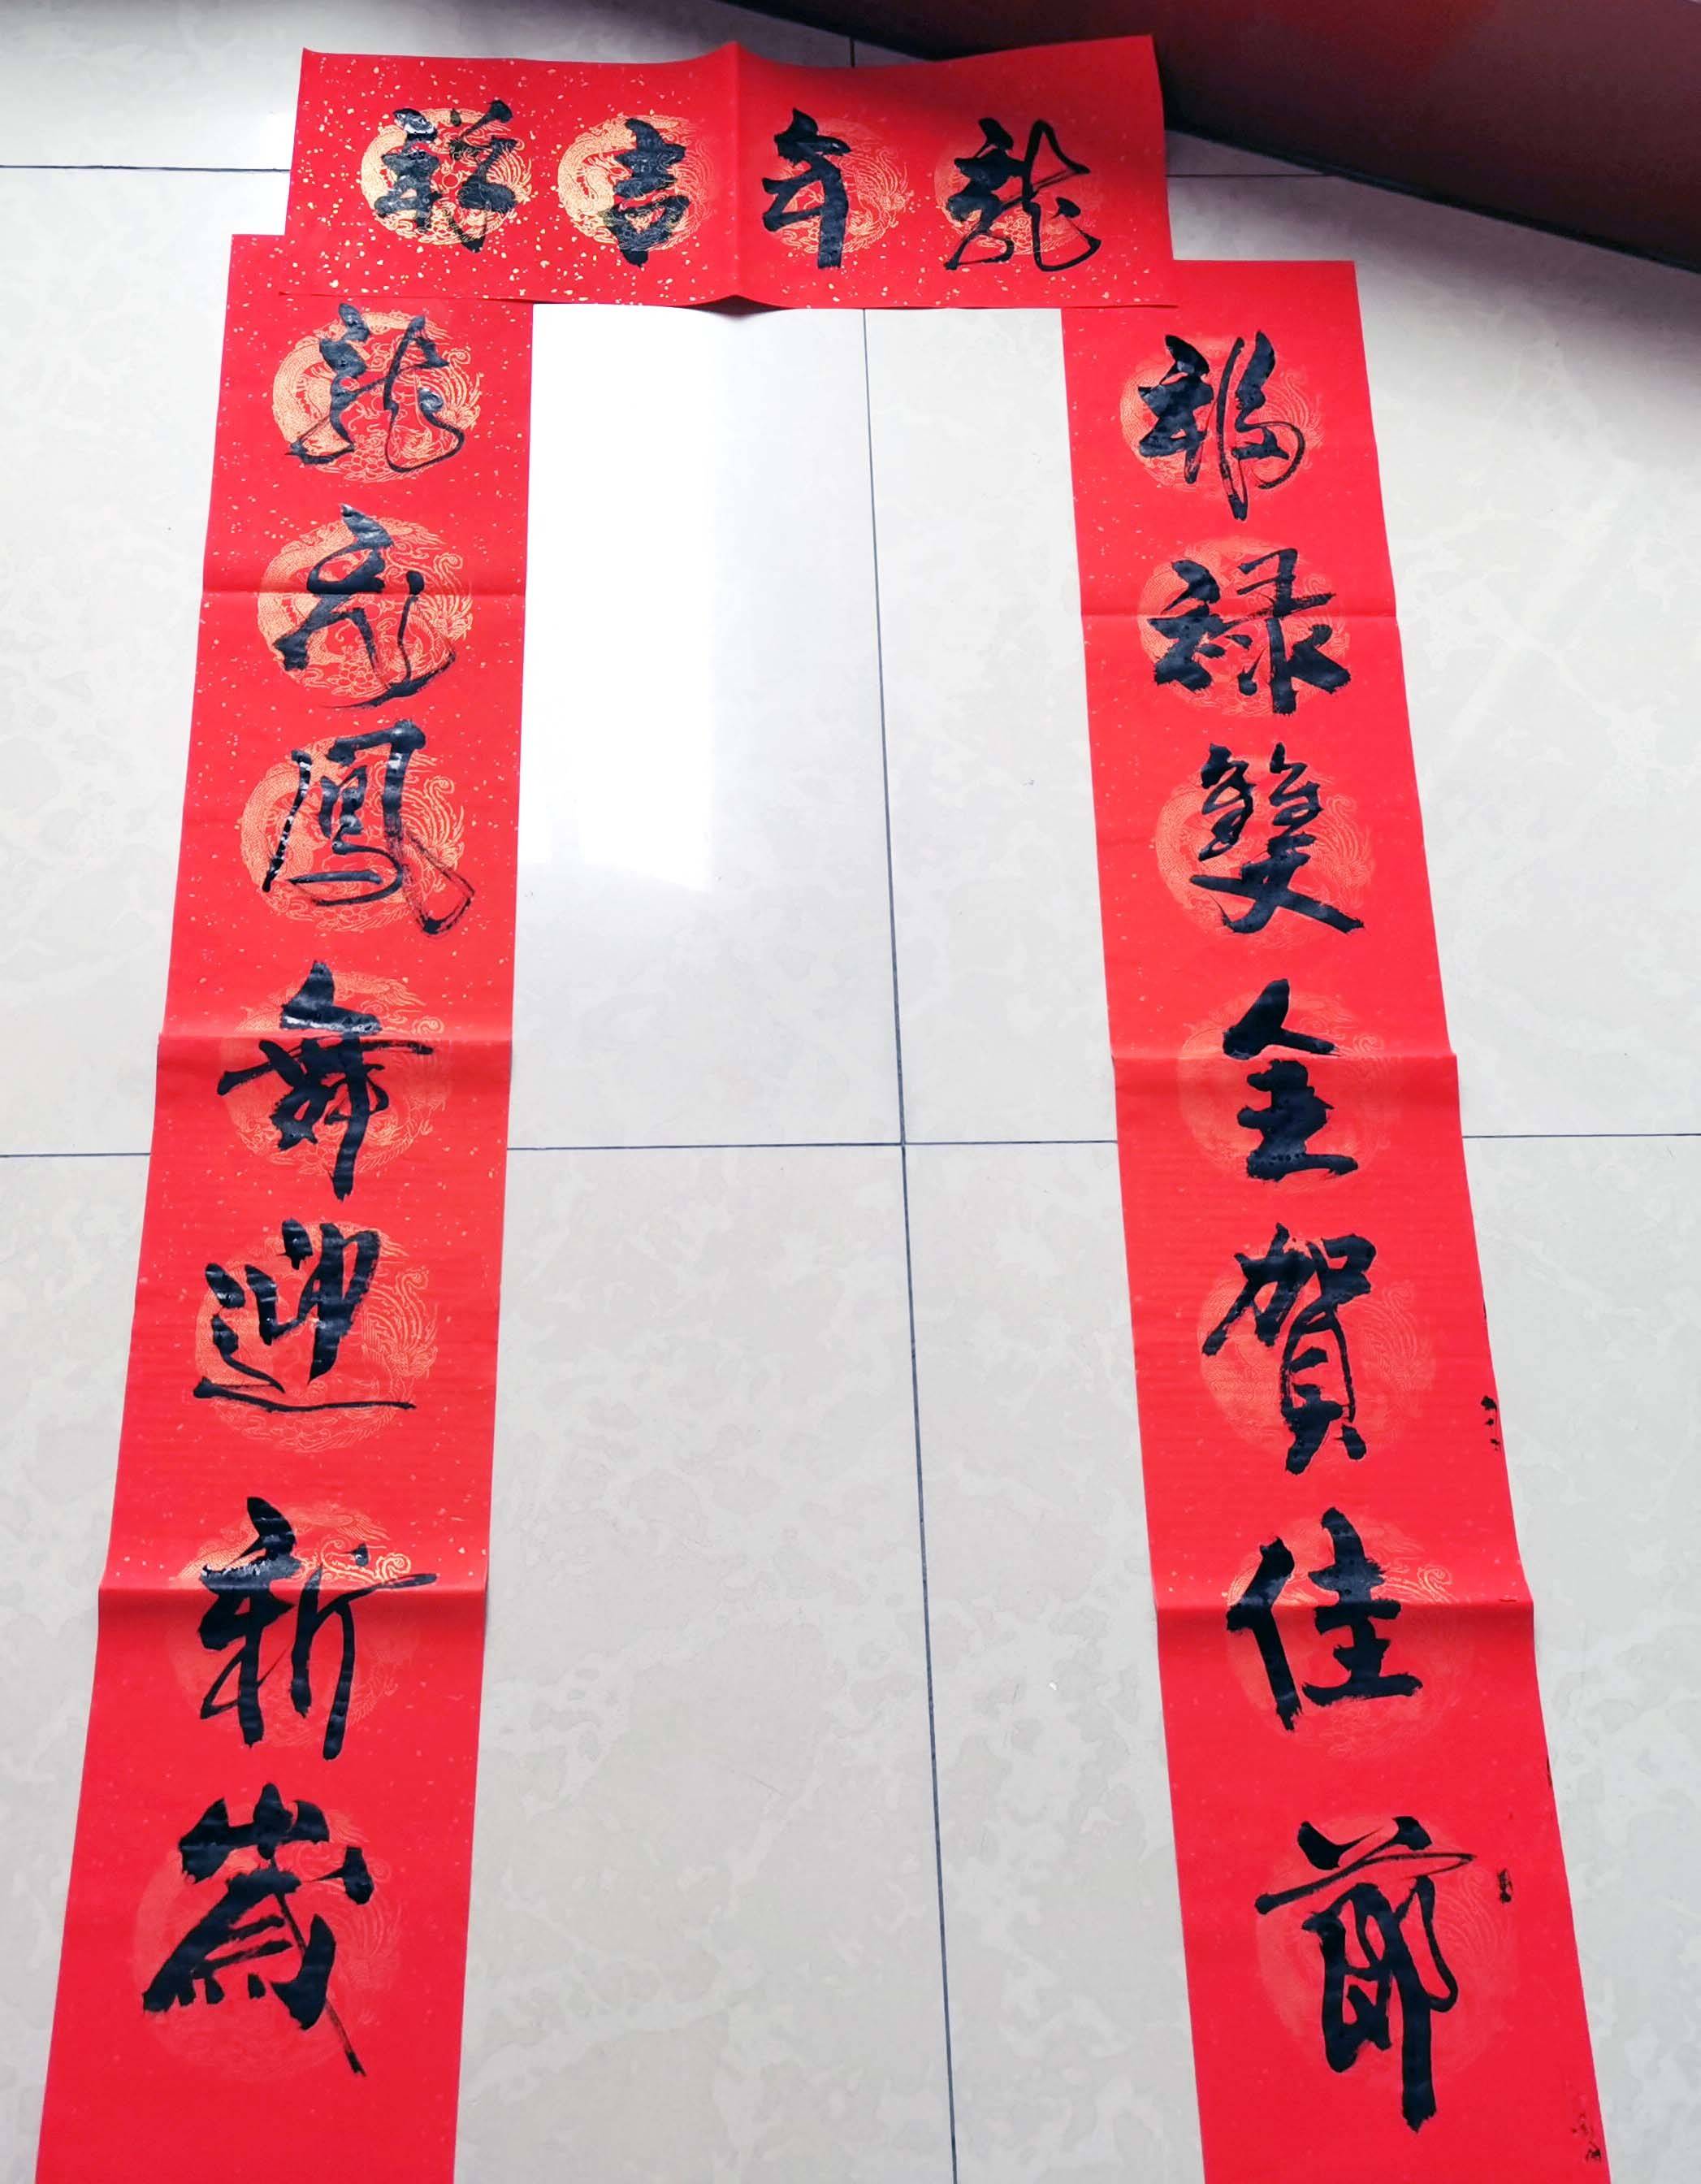 龍年吉祥
福禄雙全賀佳節
龍飛鳳舞迎新歲